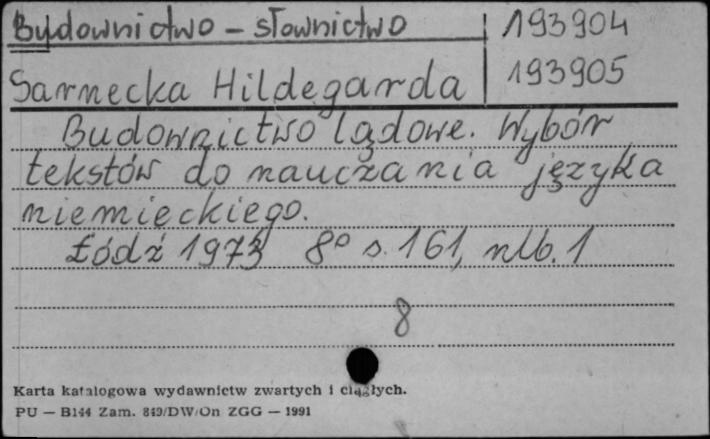 Budownictwo – słownictwo
193904
Sarnecka Hildegarda
193905
Budownictwo lądowe. Wybór
tekstów do nauczania języka
niemieckiego.
Łódź 1973 8° s. 161, nlb. 1
8
Karta katalogowa wydawnictw zwartych i ciągłych.
PU — B144 Zam. 849/DW/On ZGG — 1991